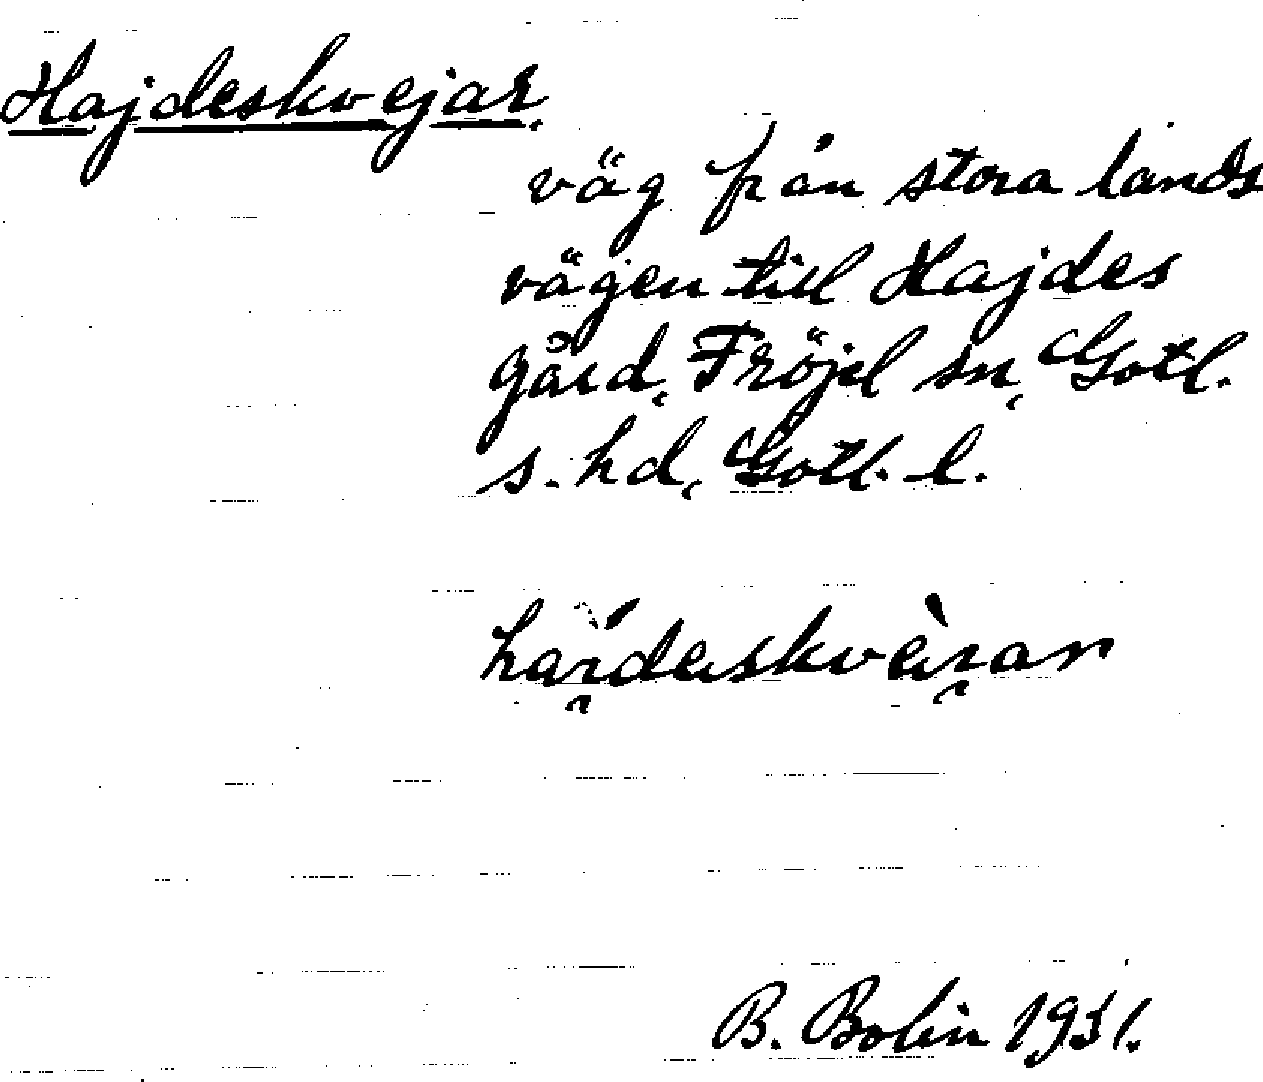 Hajdeskvejar,
väg från stora lands
vägen till Hajdes
gård, Fröjel sn, Gotl.
s. hd, Gotl. l.
B. Bolin 1931.